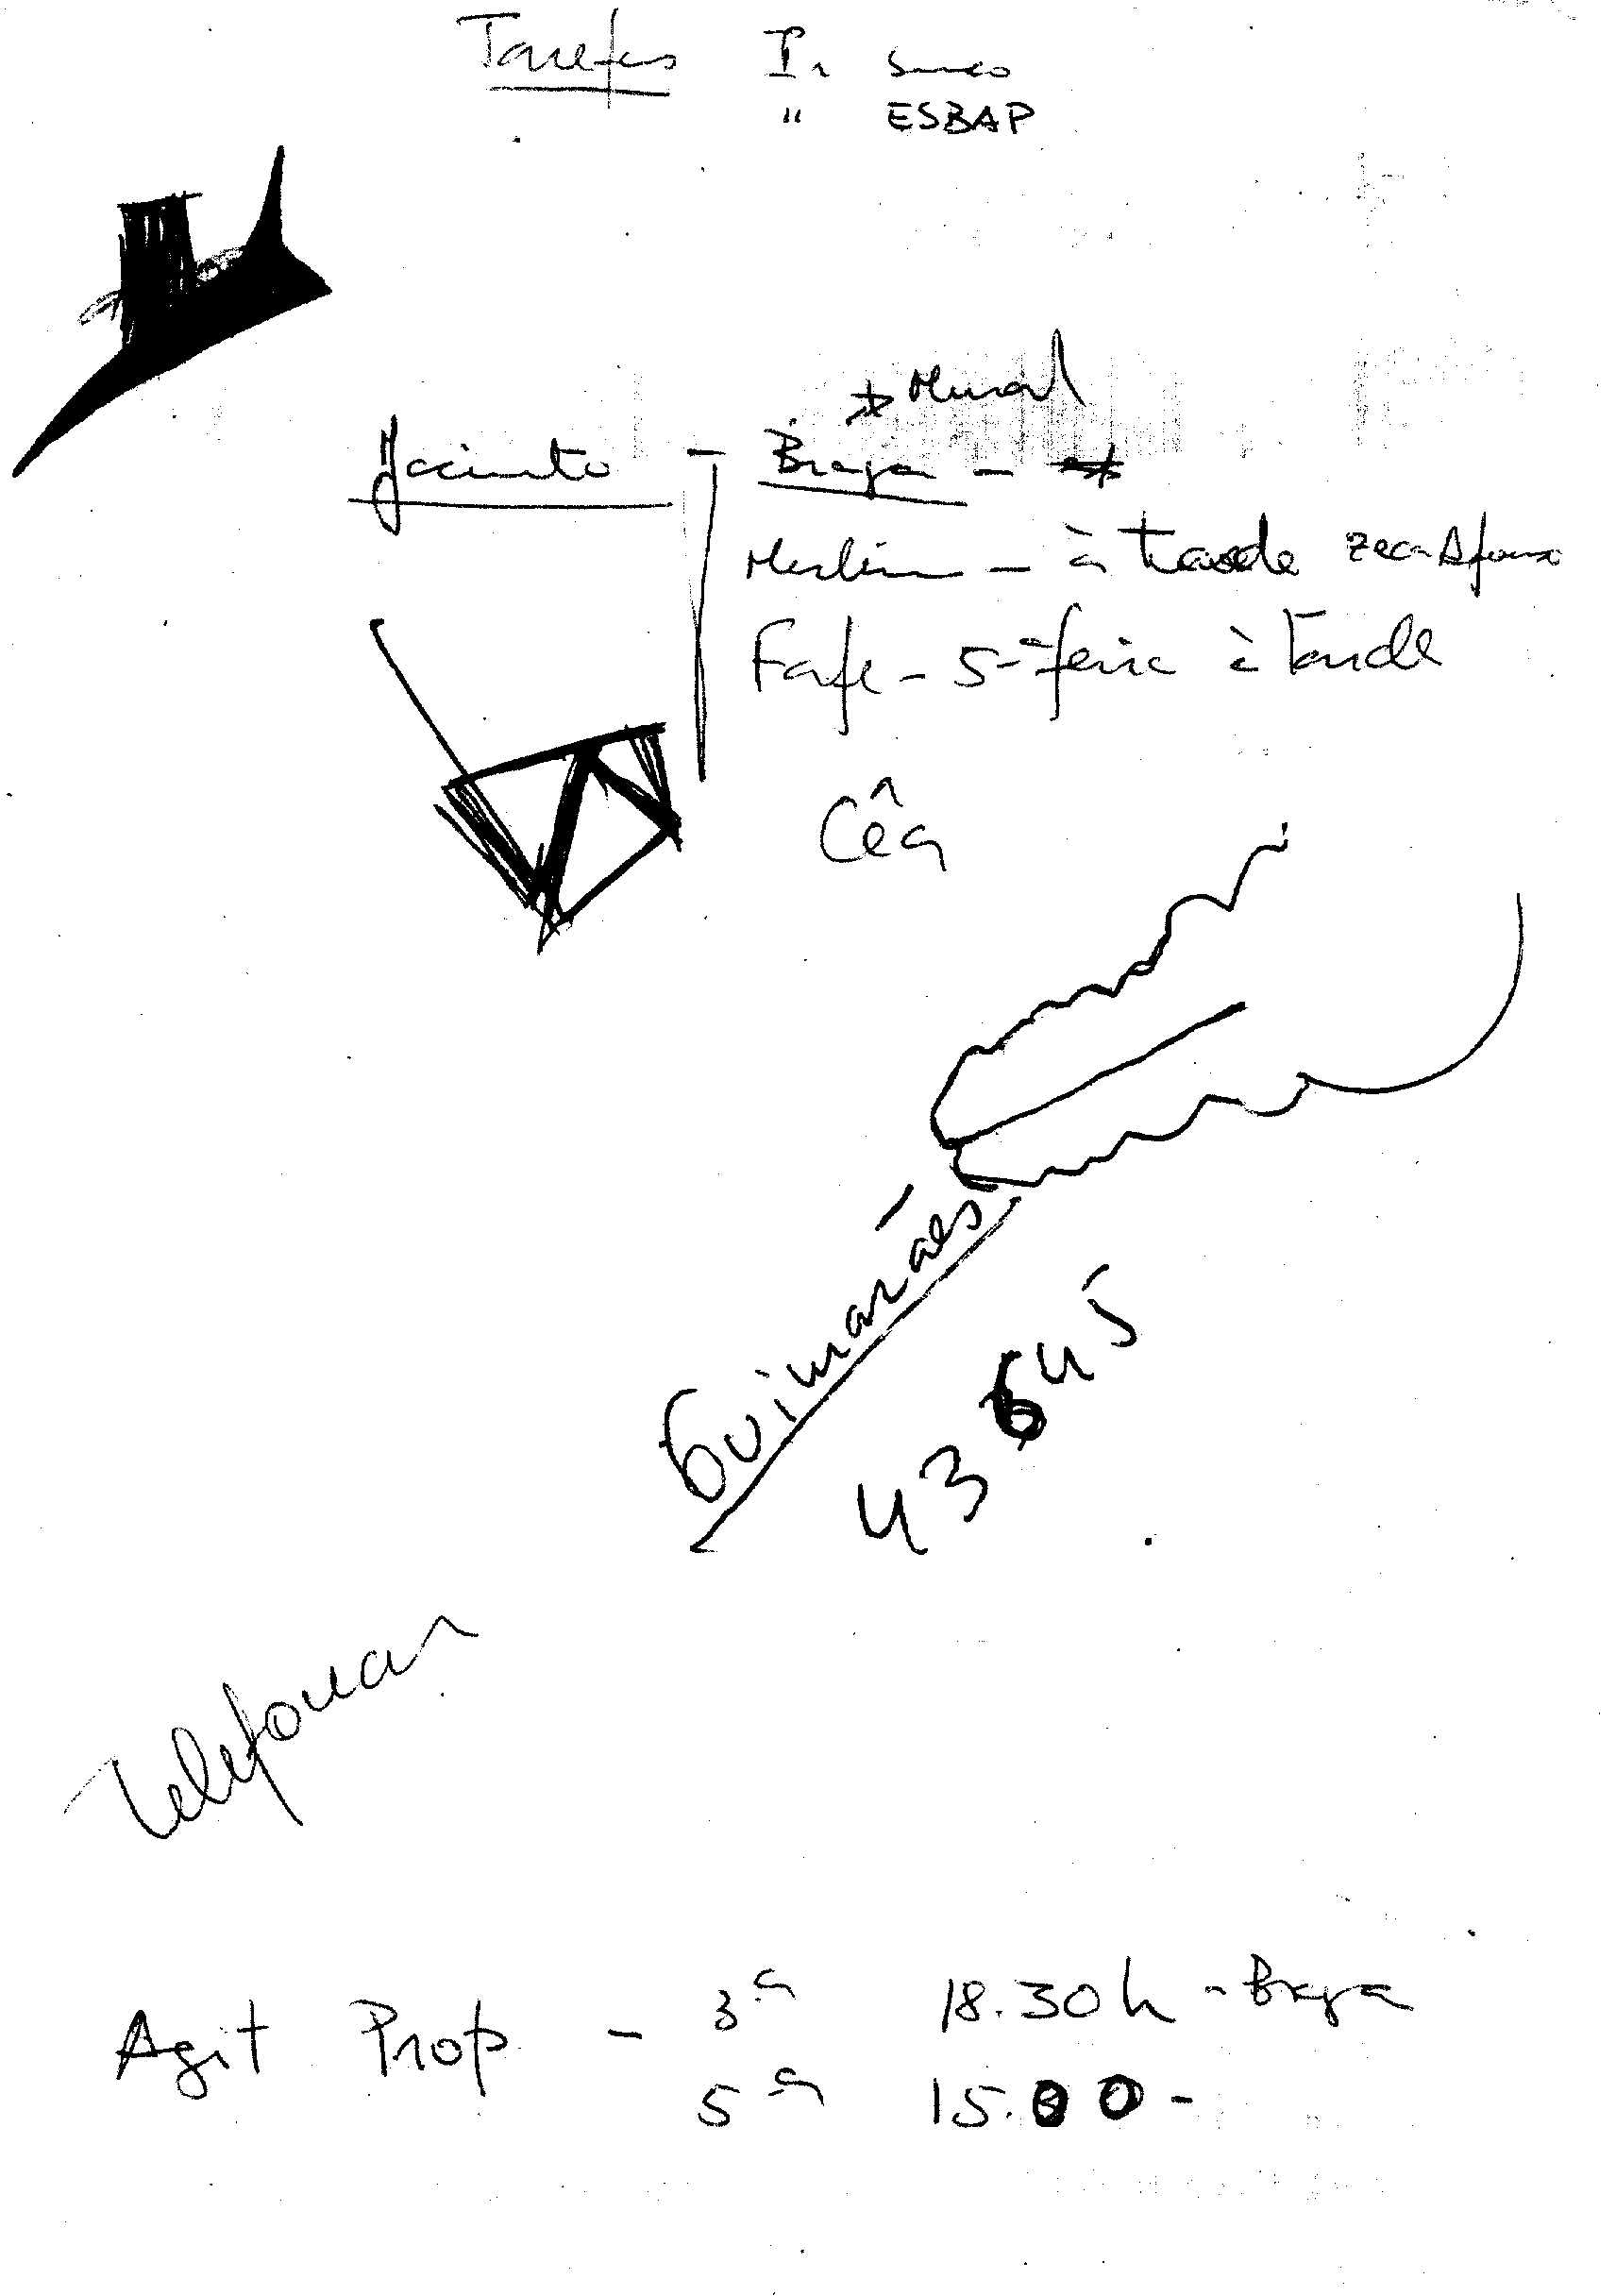 Tarefas
" ESBAP
* Mural
Jacinto - Braga - *
- à tarde Zeca Afonso
Fafe - 5ª feira à tarde
Cêa
Guimarães
43645
Telefonar
Agit Prop - 3ª 18.30h - Braga
5ª 15.00 -